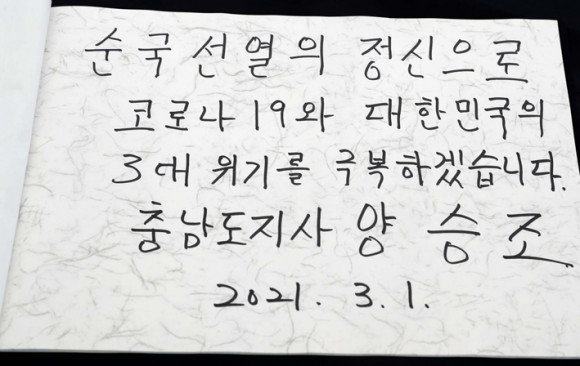 순국선열의 정신으로
코로나19와 대한민국의
3대 위기를 극복하겠습니다.
충남도지사 양 승 조
2021. 3. 1.